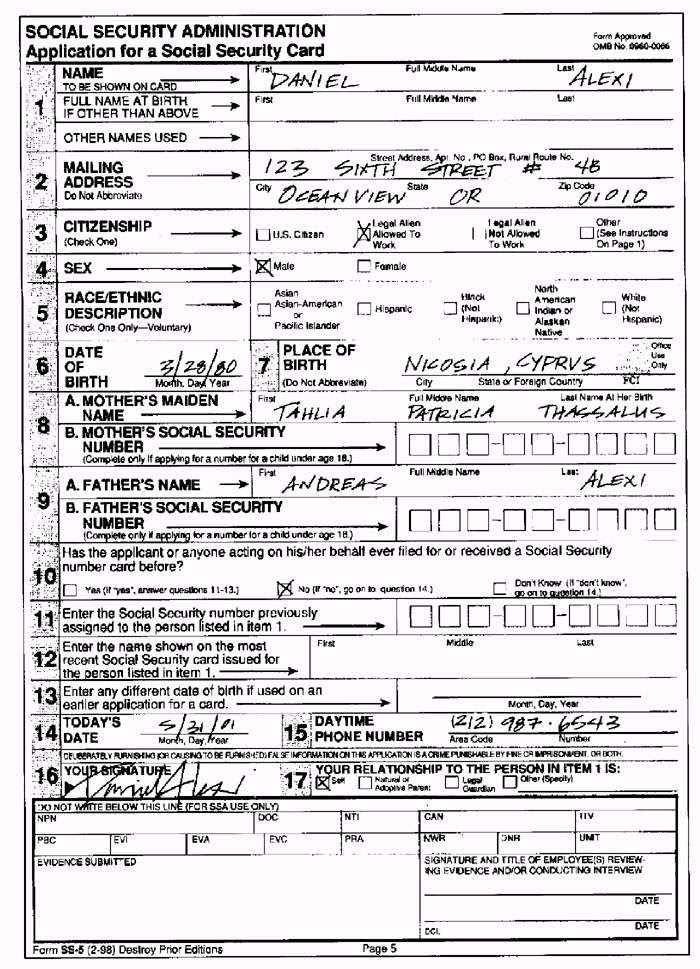 SOCIAL SECURITY ADMINISTRATION
Application for a Social Security Card
Form Approved
OMB No. 0960-0066
1
NAME
TO BE SHOWN ON CARD
First
DANIEL
Full Middle Name
Last
ALEXI
FULL NAME AT BIRTH
IF OTHER THAN ABOVE
First
Full Middle Name
Last
OTHER NAMES USED
2
MAILING
ADDRESS
Do Not Abbreviate
Street Address, Apt. No., PO Box, Rural Route No.
123 SIXTH STREET # 4B
City
OCEANVIEW
State
OR
Zip Code
01010
3
CITIZENSHIP
(Check One)
U.S. Citizen
Legal Alien
Allowed To
Work
Legal Alien
Not Allowed
To Work
Other
(See Instructions
On Page 1)
4
SEX
Male
Female
5
RACE/ETHNIC
DESCRIPTION
(Check One Only—Voluntary)
Asian
Asian-American
or
Pacific Islander
Hispanic
Black
(Not
Hispanic)
North
American
Indian or
Alaskan
Native
White
(Not
Hispanic)
6
DATE
OF
BIRTH
3/28/80
Month, Day, Year
7
PLACE OF
BIRTH
(Do Not Abbreviate)
NICOSIA, CYPRUS
City
State or Foreign Country
FCI
Office
Use
Only
8
A. MOTHER'S MAIDEN
NAME
First
TAHLIA
Full Middle Name
PATRICIA
Last Name At Her Birth
THASSALUS
B. MOTHER'S SOCIAL SECURITY
NUMBER
(Complete only if applying for a number for a child under age 18.)
9
A. FATHER'S NAME
First
ANDREAS
Full Middle Name
Last
ALEXI
B. FATHER'S SOCIAL SECURITY
NUMBER
(Complete only if applying for a number for a child under age 18.)
10
Has the applicant or anyone acting on his/her behalf ever filed for or received a Social Security
number card before?
Yes (If "yes", answer questions 11-13.)
No (If "no", go on to question 14.)
Don't Know (If "don't know",
go on to question 14.)
11
Enter the Social Security number previously
assigned to the person listed in item 1.
12
Enter the name shown on the most
recent Social Security card issued for
the person listed in item 1.
First
Middle
Last
13
Enter any different date of birth if used on an
earlier application for a card.
Month, Day, Year
14
TODAY'S
DATE
5/31/01
Month, Day, Year
15
DAYTIME
PHONE NUMBER
(212) 987-6543
Area Code
Number
DELIBERATELY FURNISHING (OR CAUSING TO BE FURNISHED) FALSE INFORMATION ON THIS APPLICATION IS A CRIME PUNISHABLE BY FINE OR IMPRISONMENT, OR BOTH.
16
YOUR SIGNATURE
17
YOUR RELATIONSHIP TO THE PERSON IN ITEM 1 IS:
Self
Natural or
Adoptive Parent
Legal
Guardian
Other (Specify)
DO NOT WRITE BELOW THIS LINE (FOR SSA USE ONLY)
NPN
DOC
NTI
CAN
ITV
PBC
EVI
EVA
EVC
PRA
NWR
DNR
UNIT
EVIDENCE SUBMITTED
SIGNATURE AND TITLE OF EMPLOYEE(S) REVIEW-
ING EVIDENCE AND/OR CONDUCTING INTERVIEW
DATE
DCL
DATE
Form SS-5 (2-98) Destroy Prior Editions
Page 5